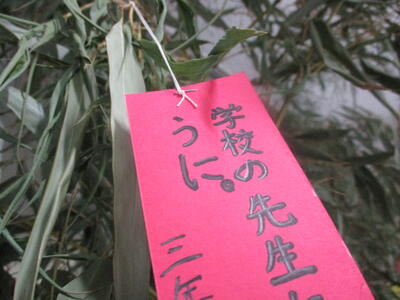 学校の先生
うに。
三年